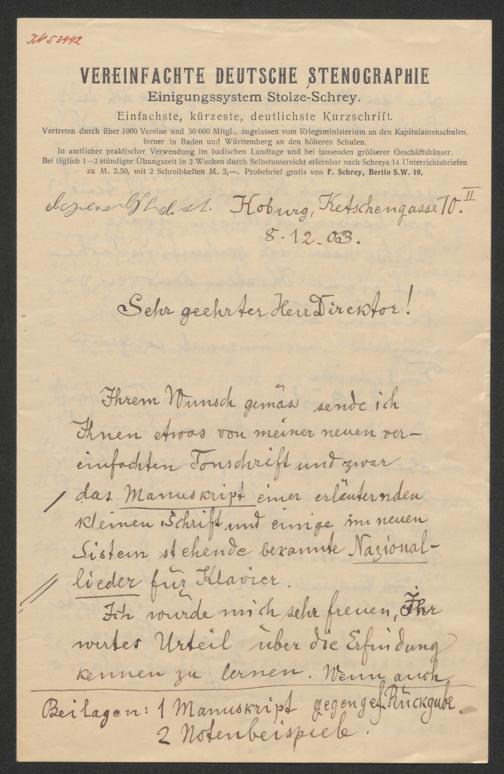 VEREINFACHTE DEUTSCHE STENOGRAPHIE
Einigungssystem Stolze-Schrey.
Einfachste, kürzeste, deutlichste Kurzschrift.
Vertreten durch über 1000 Vereine und 30 000 Mitgl., zugelassen vom Kriegsministerium an den Kapitulantenschulen,
ferner in Baden und Württemberg an den höheren Schulen.
In amtlicher praktischer Verwendung im badischen Landtage und bei tausenden größerer Geschäftshäuser.
Bei täglich 1—2 stündiger Übungszeit in 2 Wochen durch Selbstunterricht erlernbar nach Schreys 14 Unterrichtsbriefen
zu M. 2,50, mit 2 Schreibheften M. 3,—. Probebrief gratis von F. Schrey, Berlin S.W. 19.
Koburg, Ketschengasse 70.II
8-12-03.
Sehr geehrter Herr Direktor!
Ihrem Wunsch gemäs sende ich
Ihnen etwas von meiner neuen ver-
einfachten Tonschrift und zwar
das Manuskript einer erläuternden
kleinen Schrift und einige im neuen
Sistem stehende bekannte Nazional-
lieder für Klavier.
Ich würde mich sehr freuen, Ihr
wertes Urteil über die Erfindung
kennen zu lernen. Wenn auch
Beilagen: 1 Manuskript gegen gef. Rückgabe.
2 Notenbeispiele.